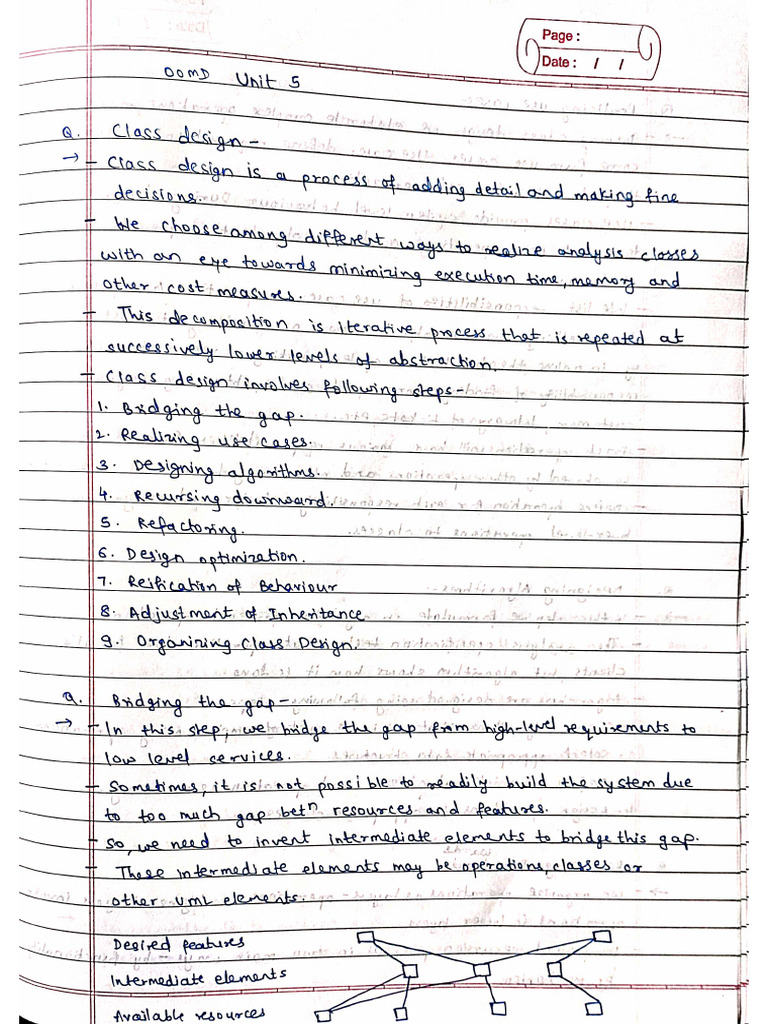 Page :
Date : / /
OOMD Unit 5
Q. Class design -
→ - Class design is a process of adding detail and making fine
decisions.
- We choose among different ways to realize analysis classes
with an eye towards minimizing execution time, memory and
other cost measures.
- This decomposition is iterative process that is repeated at
successively lower levels of abstraction.
- Class design involves following steps -
1. Bridging the gap.
2. Realizing use cases.
3. Designing algorithms.
4. Recursing downward.
5. Refactoring.
6. Design optimization.
7. Reification of Behaviour
8. Adjustment of Inheritance
9. Organizing Class Design.
Q. Bridging the gap -
→ - In this step, we bridge the gap from high-level requirements to
low level services.
- Sometimes, it is not possible to readily build the system due
to too much gap betⁿ resources and features.
- So, we need to invent intermediate elements to bridge this gap.
- These intermediate elements may be operations, classes or
other UML elements.
Desired features
Intermediate elements
Available resources